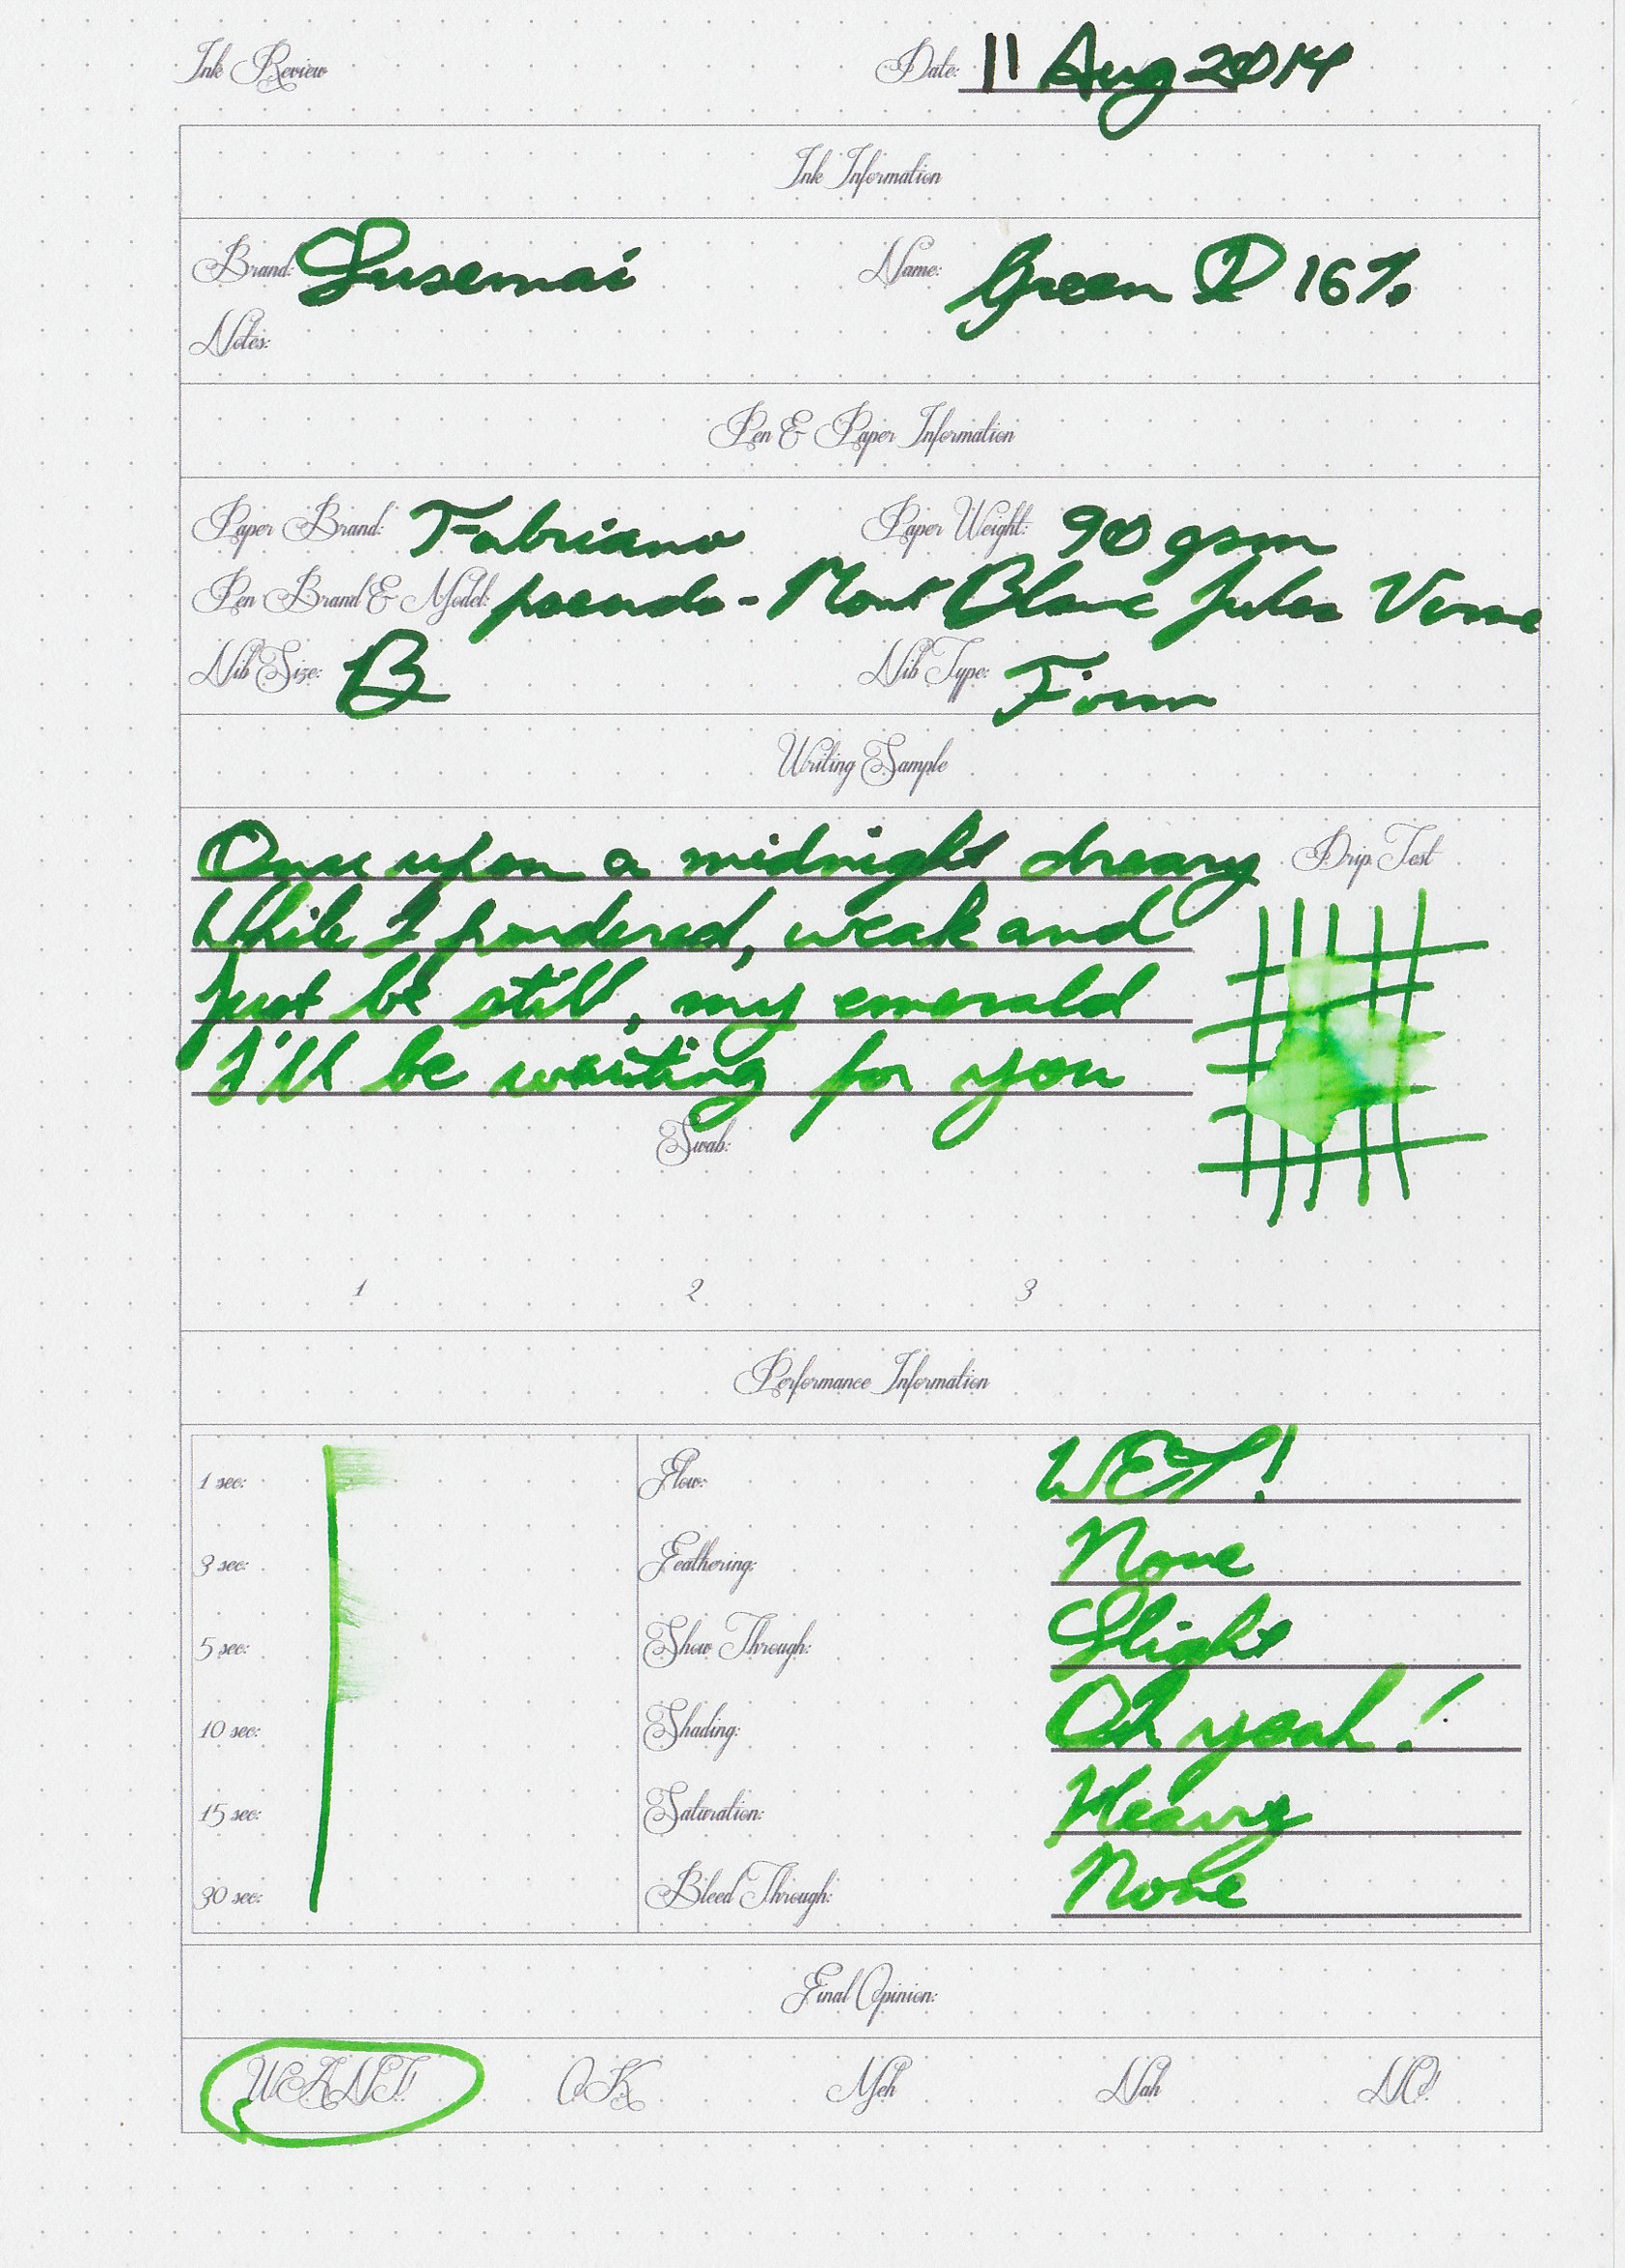 Ink Review Date: 11 Aug 2014
Ink Information
Brand: Susemai Name: Green D 16%
Notes:
Pen & Paper Information
Paper Brand: Fabriano Paper Weight: 90 gsm
Pen Brand & Model: pseudo-Mont Blanc Jules Verne
Nib Size: B Nib Type: Firm
Writing Sample
Once upon a midnight dreary Drip Test
While I pondered, weak and
Just be still, my emerald
I'll be waiting for you
Swab:
1 2 3
Performance Information
1 sec: Flow: WET!
3 sec: Feathering: None
5 sec: Show Through: Slight
10 sec: Shading: Oh yeah!
15 sec: Saturation: Heavy
30 sec: Bleed Through: None
Final Opinion:
WANT! OK Meh Nah NO!